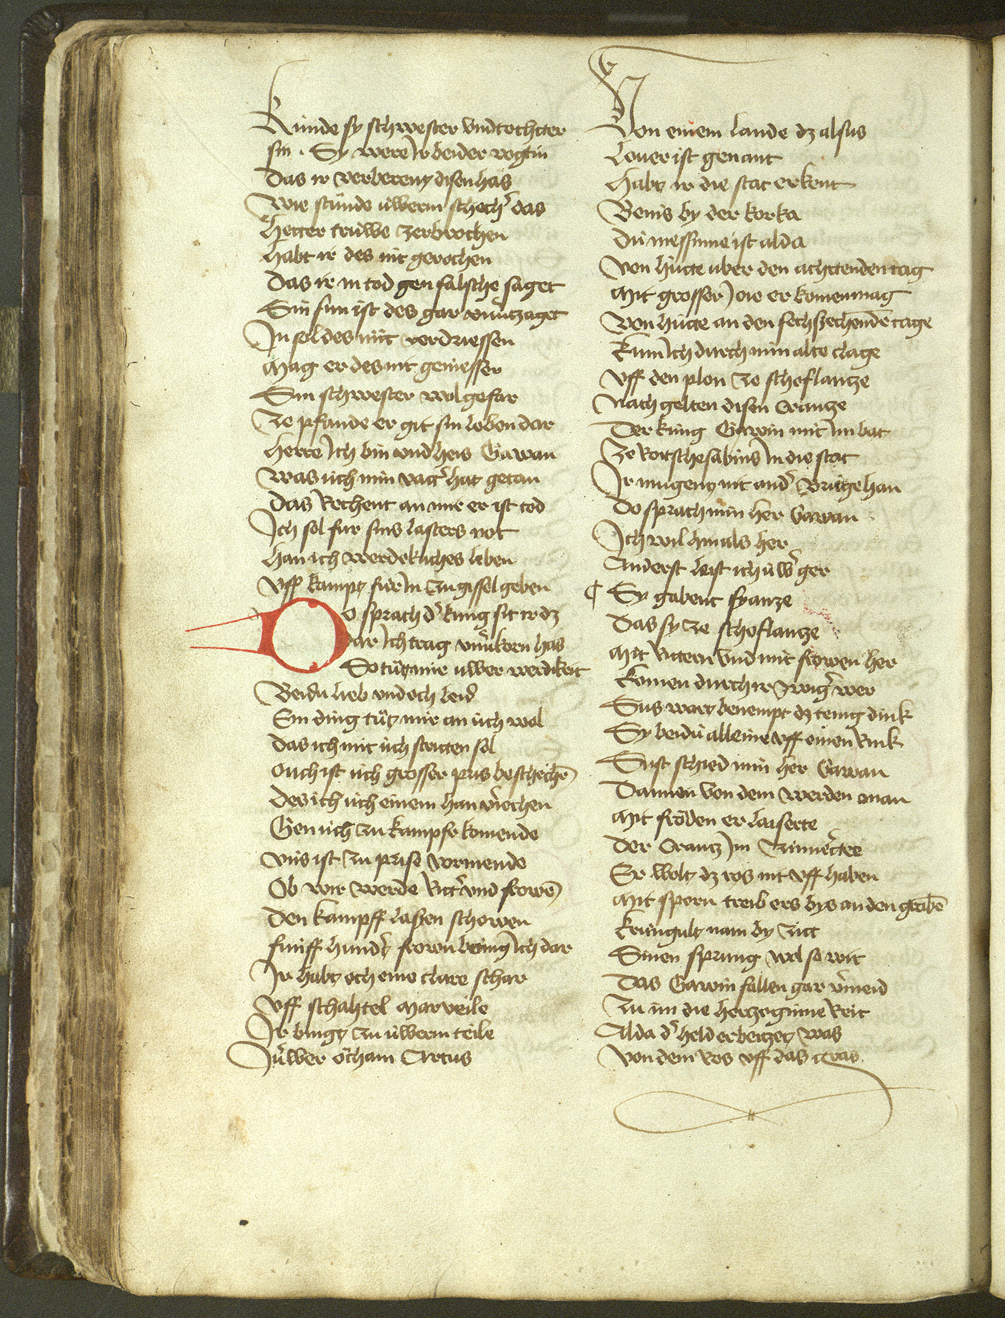 Kunde sy schwester vnd tochtter
sin . Sy were Ir beider vogtin
Das ir verberent disen has
Wie stúnde úwerm schech᷑ das
Hetter truwe zerbrochen
Habt ir des nit gerochen
Das ir in tod gen falsche saget
Sin sun ist des gar vnu᷑tzaget
In sol des nút verdriessen
Mag er des nit geniessen
Sin schwester wol gefar
Ze pfande er git sin leben dar
Herre Ich bin vnd heis Gawan
Was úch min vatt᷑ hat getan
Das Rechent an mir er ist tod
Ich sol fúr sins lasters not
Han ich werdekliches leben
Vff kampf fúr In zu gissel geben
Do sprach d᷑ kúng sit ir dz
Dar Ich trag vnu᷑korn has
So tút mir úwer werdikeit
Beidu lieb vnd och leid
Ein ding tút mir an úch wol
Das ich mit úch striten sol
Ouch ist úch grosser pris beschechē
Des ich úch einem han v᷑iechen
Gen úch zu kampfe komende
Vns ist zu prise vormende
Ob wir werde Ritt᷑ vnd frowē
Den kampff lassen schowen
Fúnff hund᷑t frown bring Ich dar
Ir habt och eine clare schar
Vff schahtel marveile
Ir bingt zu úwerm teile
Iúwer ocham Artus
Von einem lande dz alsus
Lover ist genant
Habt ir die stat erkent
Benis by der korka
Dú messinne ist alda
Von hútte úber den achttenden tag
Mit grosser Ioie er komen mag
Von hútte an den sechszechendē tage
Kum Ich durch min alte clage
Vff den plon ze schoflantze
Nach gelten disen crantze
Der kúng Gawin mit Im bat
Ze Rottschesabins In die stat
Ir mugent nit and᷑ Brúge han
Do sprach min her Gawan
Ich wil hin als her
Anderst leist ich úw᷑ ger
¶ Sy gabent fyantze
Das sy ze schoflantze
Mit Rittern vnd mit frowen her
Komen durch ir zwig᷑ wer
Sus wart benempt dz teing dink
Sy beidú alleine vff einen Rink
Sust schied min her Gawan
Dannen von dem werden man
Mit fröden er laiserte
Der crantz Im zimiertte
Er wolt dz ros nit vff haben
Mit sporn treib ers bys an den grabē
Kringult nam by zitt
Sinen sprung wol so wit
Das Gawin fallen gar v᷑meid
Zu im die hertzoginne Reit
Alda d᷑ held erbeitzet was
Von dem Ros vff das gras